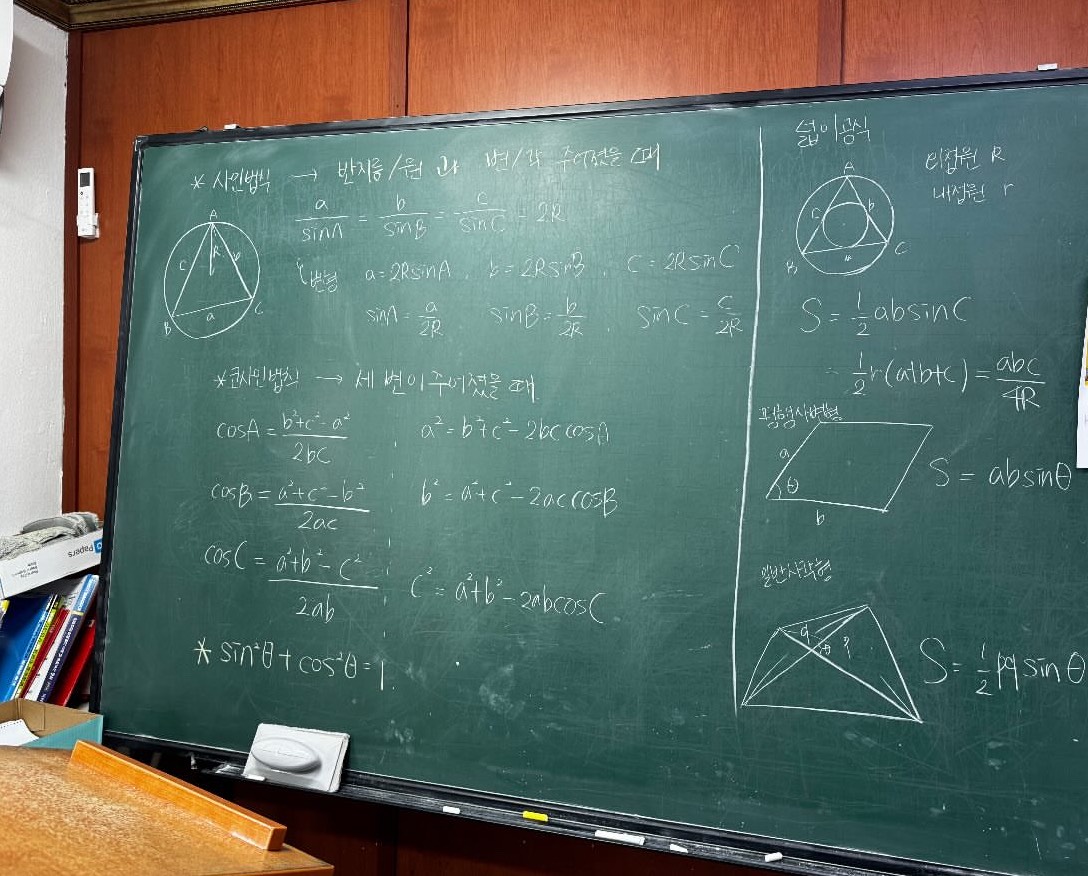 * 사인법칙 → 반지름/원 과 변/각 주어졌을 때
a/sinA = b/sinB = c/sinC = 2R
A
c
R
b
B
a
C
변형 a=2RsinA, b=2RsinB, c=2RsinC
sinA=a/2R sinB=b/2R, sinC=c/2R
*코사인법칙 → 세 변이 주어졌을 때
cosA=(b²+c²-a²)/2bc, a²=b²+c²-2bc cosA
cosB=(a²+c²-b²)/2ac b²=a²+c²-2ac cosB
cosC=(a²+b²-c²)/2ab c²=a²+b²-2abcosC
* sin²θ+cos²θ=1.
넓이공식
외접원 R
내접원 r
A
c
b
B
a
C
S=1/2 absinC
=1/2 r(a+b+c)=abc/4R
평행사변형
a
θ
b
S=absinθ
일반사각형
q
θ
S=1/2 pq sinθ
Papers